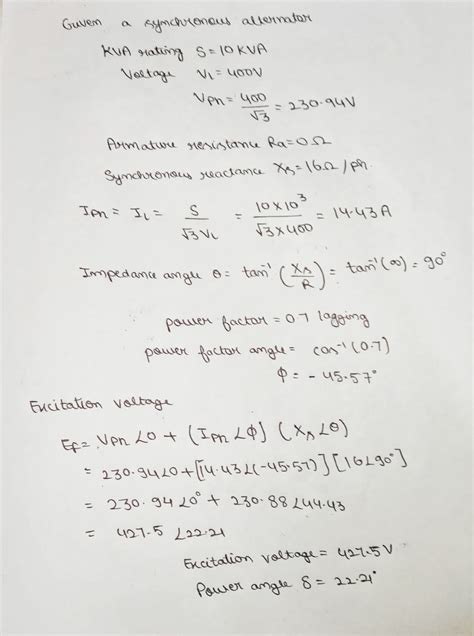 Given a synchronous alternator
KVA rating S = 10 KVA
Voltage V_L = 400V
V_Ph = 400/√3 = 230.94V
Armature resistance Ra = 0Ω
Synchronous reactance X_s = 16Ω/ph.
I_Ph = I_L = S/(√3 V_L) = (10×10³)/(√3×400) = 14.43A
Impedance angle θ = tan⁻¹(X_s/R) = tan⁻¹(∞) = 90°
power factor = 0.7 lagging
power factor angle = cos⁻¹(0.7)
ϕ = -45.57°
Excitation voltage
E_f = V_Ph∠0 + (I_Ph∠ϕ) (X_s∠θ)
= 230.94∠0 + [14.43∠(-45.57)] [16∠90°]
= 230.94∠0° + 230.88∠44.43
= 427.5∠22.21
Excitation voltage = 427.5V
Power angle δ = 22.21°